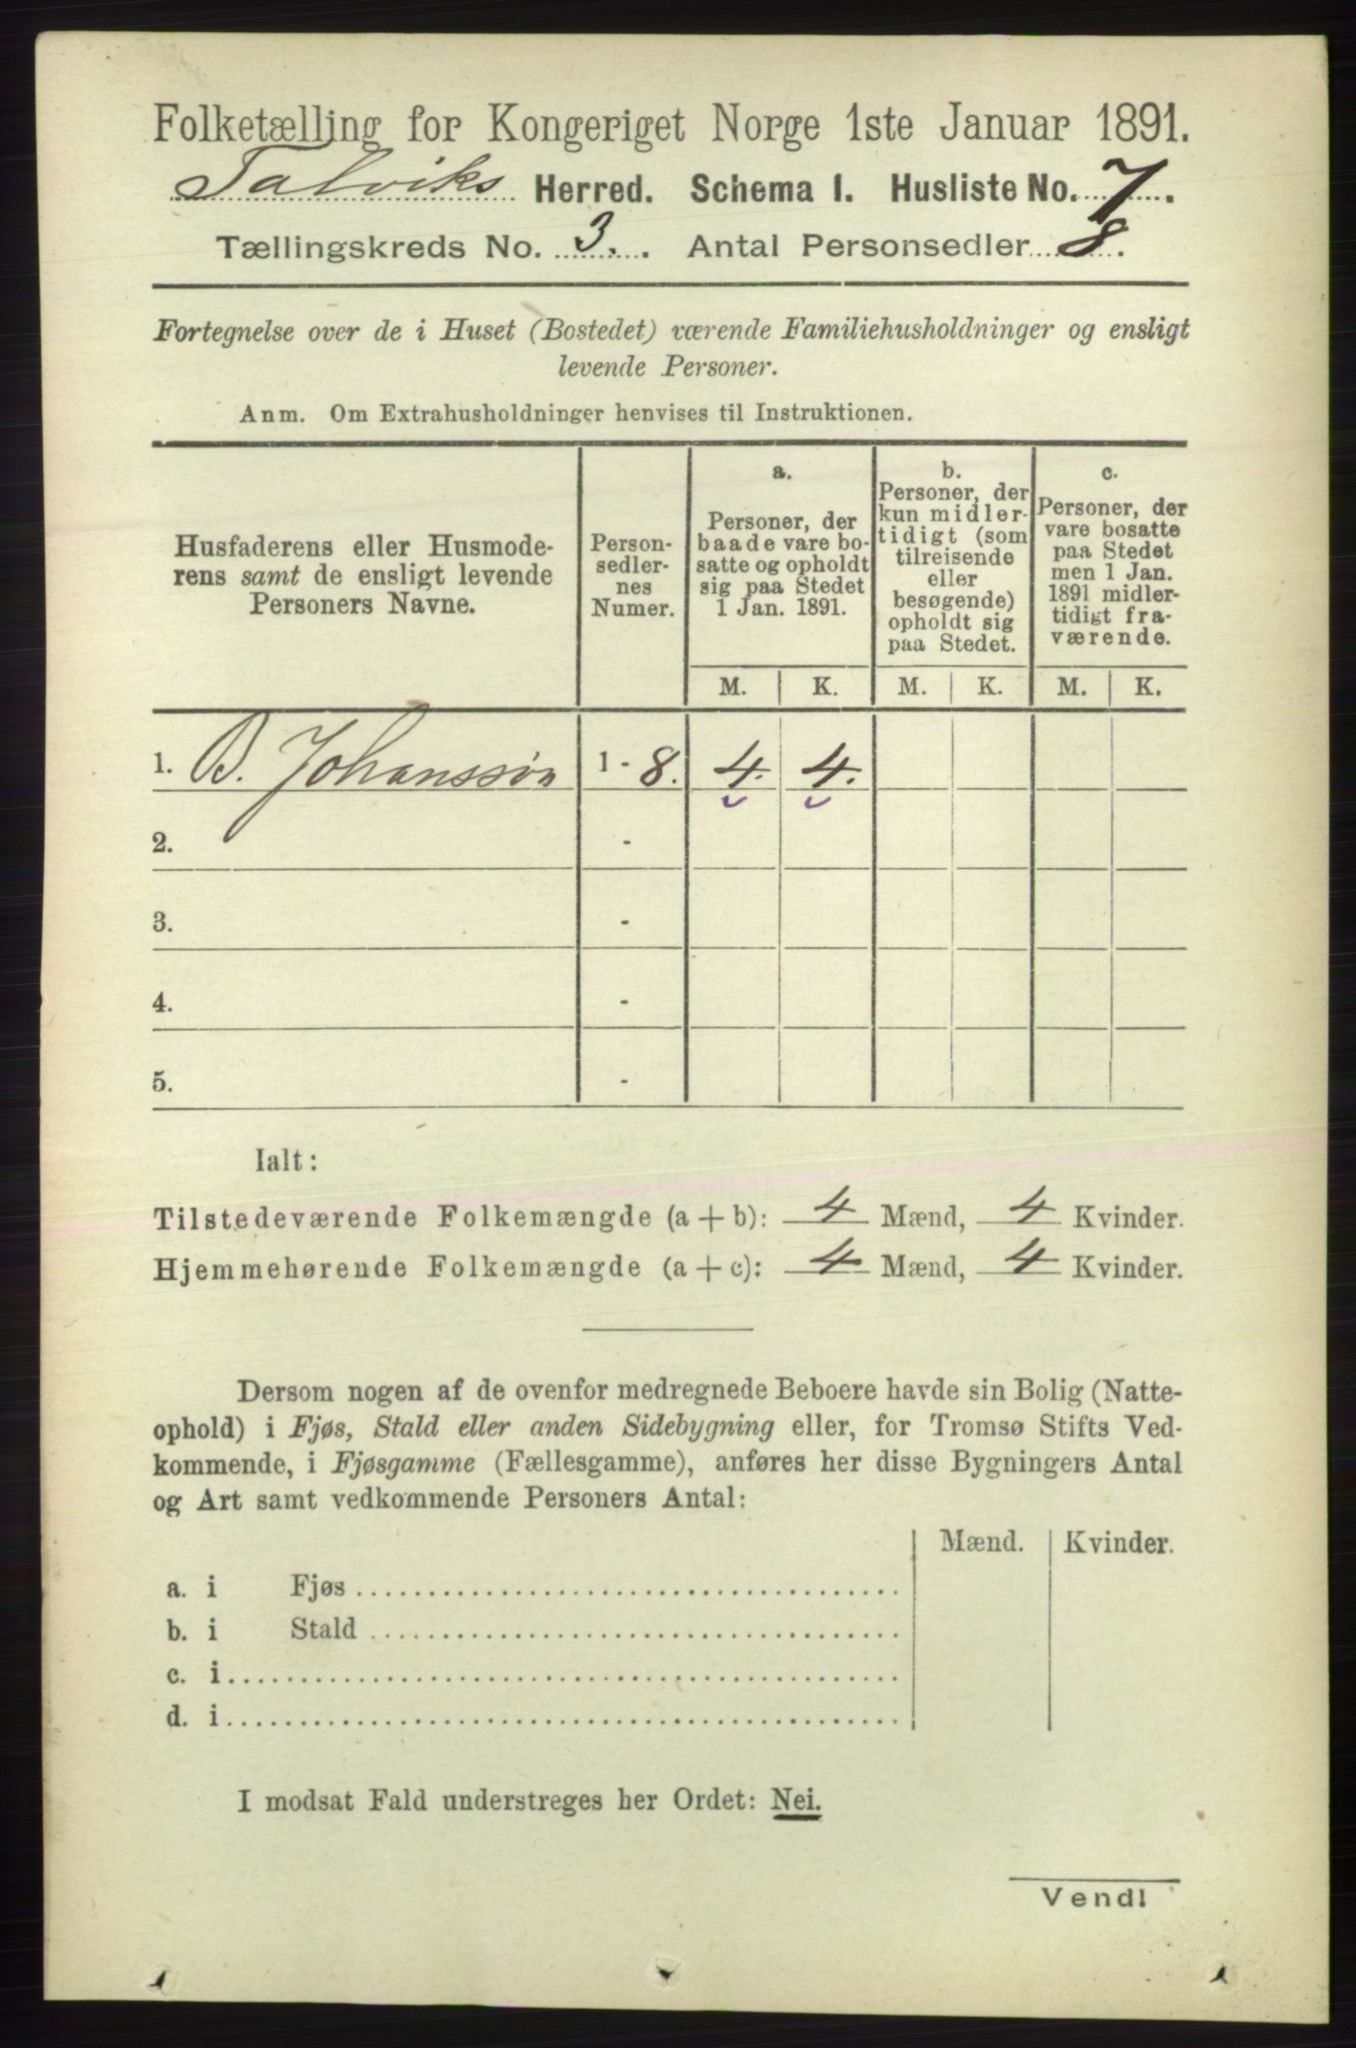 Folketælling for Kongeriget Norge 1ste Januar 1891.
Talviks Herred. Schema 1. Husliste No. 7.
Tællingskreds No. 3. Antal Personsedler 8.
Fortegnelse over de i Huset (Bostedet) værende Familiehusholdninger og ensligt
levende Personer.
Anm. Om Extrahusholdninger henvises til Instruktionen.
Husfaderens eller Husmode-
rens samt de ensligt levende
Personers Navne.
Person-
sedler-
nes
Numer.
a.
Personer, der
baade vare bo-
satte og opholdt
sig paa Stedet
1 Jan. 1891.
b.
Personer, der
kun midler-
tidigt (som
tilreisende
eller
besøgende)
opholdt sig
paa Stedet.
c.
Personer, der
vare bosatte
paa Stedet
men 1 Jan.
1891 midler-
tidigt fra-
værende.
M. K. M. K. M. K.
1. B. Johanssøn 1 - 8. 4. 4.
2. -
3. -
4. -
5. -
Ialt:
Tilstedeværende Folkemængde (a + b): 4 Mænd, 4 Kvinder.
Hjemmehørende Folkemængde (a + c): 4 Mænd, 4 Kvinder.
Dersom nogen af de ovenfor medregnede Beboere havde sin Bolig (Natte-
ophold) i Fjøs, Stald eller anden Sidebygning eller, for Tromsø Stifts Ved-
kommende, i Fjøsgamme (Fællesgamme), anføres her disse Bygningers Antal
og Art samt vedkommende Personers Antal:
Mænd. Kvinder.
a. i Fjøs
b. i Stald
c. i
d. i
I modsat Fald understreges her Ordet: Nei.
Vend!